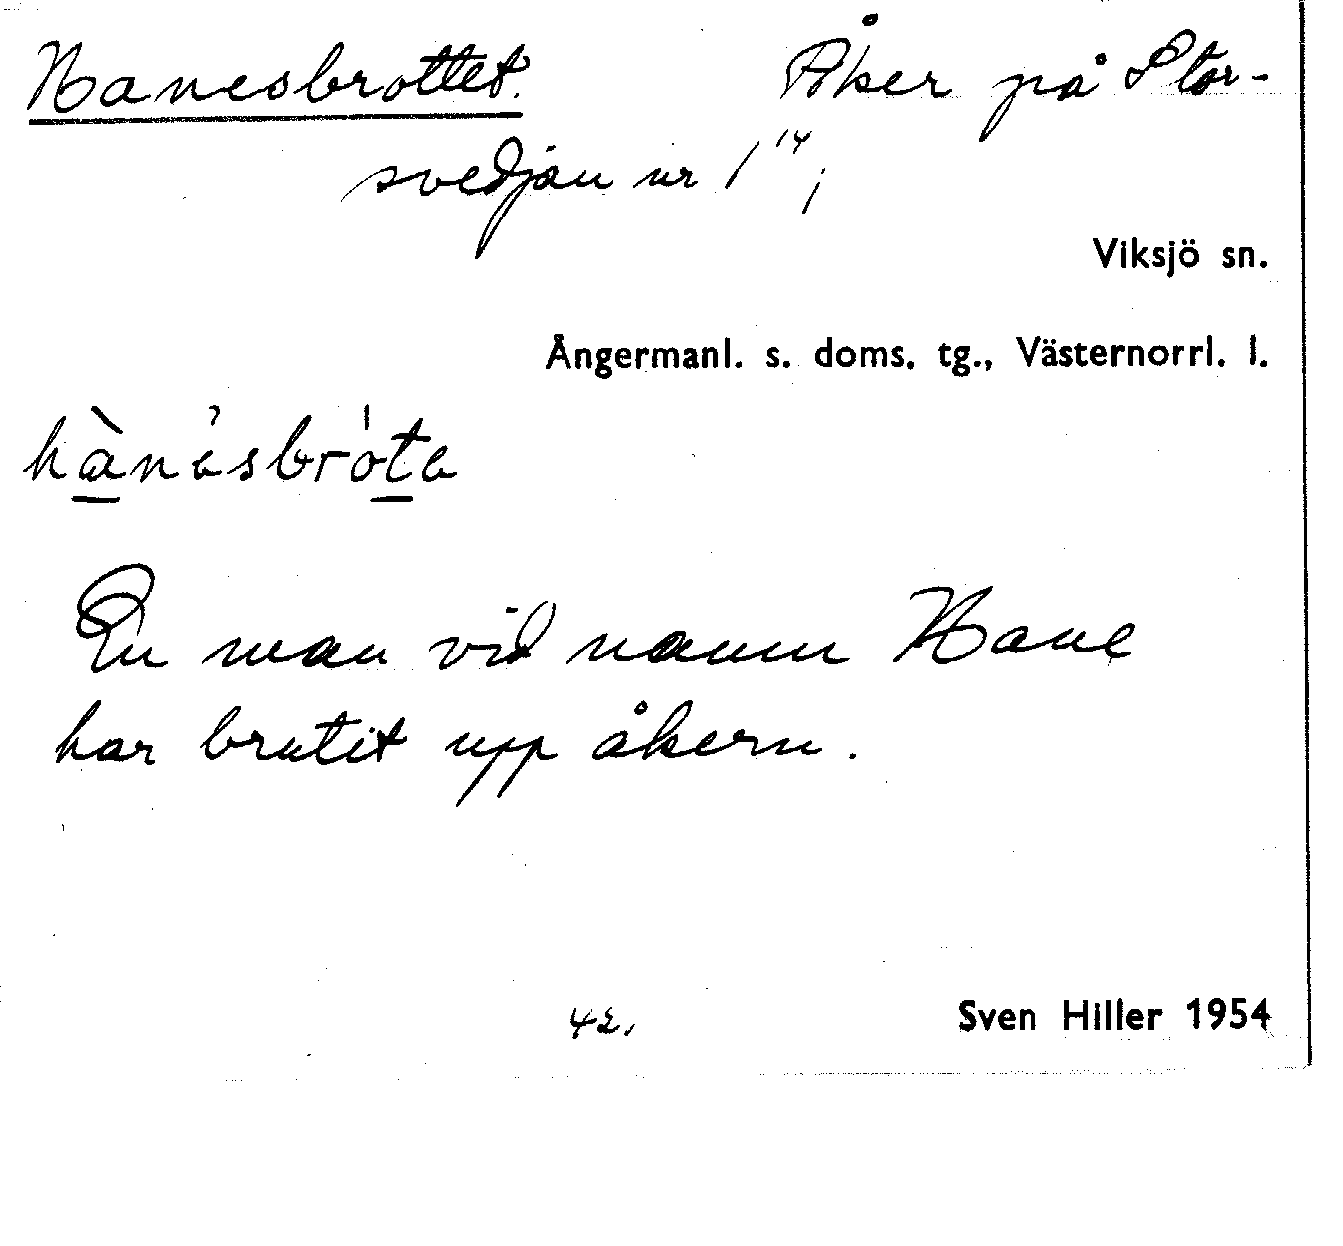 Hanesbrottet. Åker på Stor-
svedjan nr 1¹⁴;
Viksjö sn.
Ångermanl. s. doms. tg., Västernorrl. l.
En man vid namn Hane
har brutit upp åkern.
42.
Sven Hiller 1954